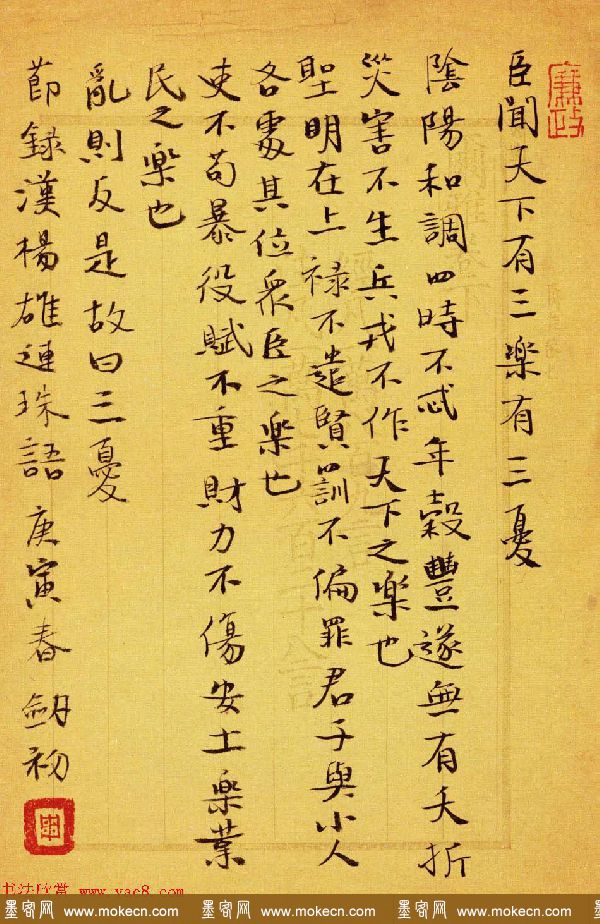 廉政
臣聞天下有三樂有三憂
陰陽和調四時不忒年穀豐遂無有夭折
災害不生兵戎不作天下之樂也
聖明在上禄不遺賢罰不偏罪君子與小人
各處其位衆臣之樂也
吏不苟暴役賦不重財力不傷安土樂業
民之樂也
亂則反是故曰三憂
節録漢楊雄連珠語庚寅春劒初
书法欣赏 www.yac8.com
墨客网 www.mokecn.com 墨客网 www.mokecn.com 墨客网 www.mokecn.com